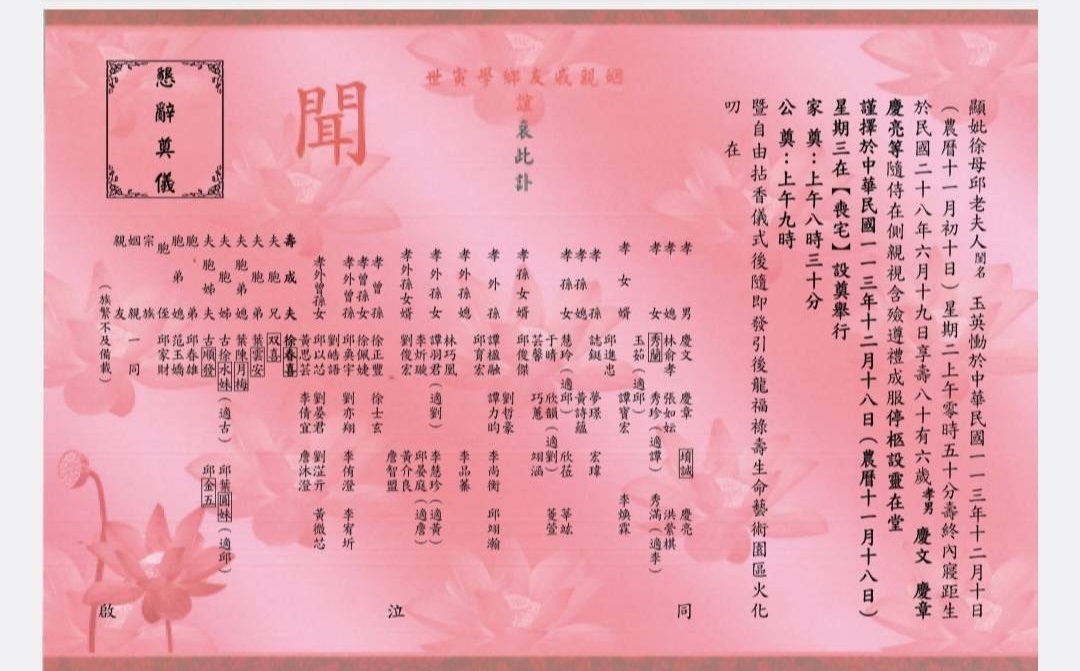 顯妣徐母邱老夫人閨名　玉英慟於中華民國一一三年十二月十日
（農曆十一月初十日）星期二上午零時五十分壽終內寢距生
於民國二十八年六月十九日享壽八十有六歲孝男　慶文　慶章
慶亮等隨侍在側親視含殮遵禮成服停柩設靈在堂
謹擇於中華民國一一三年十二月十八日（農曆十一月十八日）
星期三在【喪宅】設奠舉行
家奠：上午八時三十分
公奠：上午九時
暨自由拈香儀式後隨即發引後龍福祿壽生命藝術園區火化
叨在
姻親戚友鄉學寅世
誼　哀此訃
聞
懇辭奠儀
孝男　慶文　慶章　塤誠　慶亮
孝媳　林俞孝　張如妘　洪縈棋
孝女　秀蘭　秀珍（適譚）　秀滿（適李）
玉茹（適邱）
孝女婿　邱進忠　譚寶宏　李煥霖
孝孫　誌鋌　夢璟　宏瑋
孝孫媳　黃詩蘊
孝孫女　慧玲（適邱）　欣蓓　莘竑
于晴　欣韻（適劉）
芸馨　巧蕙　翊涵　萲萱
孝孫女婿　邱俊傑　劉哲豪
孝外孫　譚楹融　譚力昀　李尚衡　邱翊瀚
邱育宏
孝外孫媳　林巧凰　李品蓁
孝外孫女　譚羽君（適劉）　李慧珍（適黃）
李炘璇　邱晏庭（適詹）
孝外孫女婿　劉俊宏　黃介良
詹智盟
孝曾孫　徐正豐　徐士玄
孝曾孫女　徐佩婕
孝外曾孫　邱奐宇　劉亦翔　李侑澄　李宥圻
劉皓語
孝外曾孫女　邱以芯　劉晏君　劉淽亓　黃微芯
黃思芸　李倩宜　詹沐澄
壽成夫　徐春喜
夫胞兄　双喜
夫胞弟　葉雲安
夫胞弟媳　葉陳月梅
夫胞姊　古徐水妹（適古）　邱葉圓妹（適邱）
夫胞姊夫　古順發　邱金五
胞弟　邱春雄
胞弟媳　范玉嬌
胞侄　邱家財
宗族
姻親　一同
親友
（族繁不及備載）
同　泣　啟